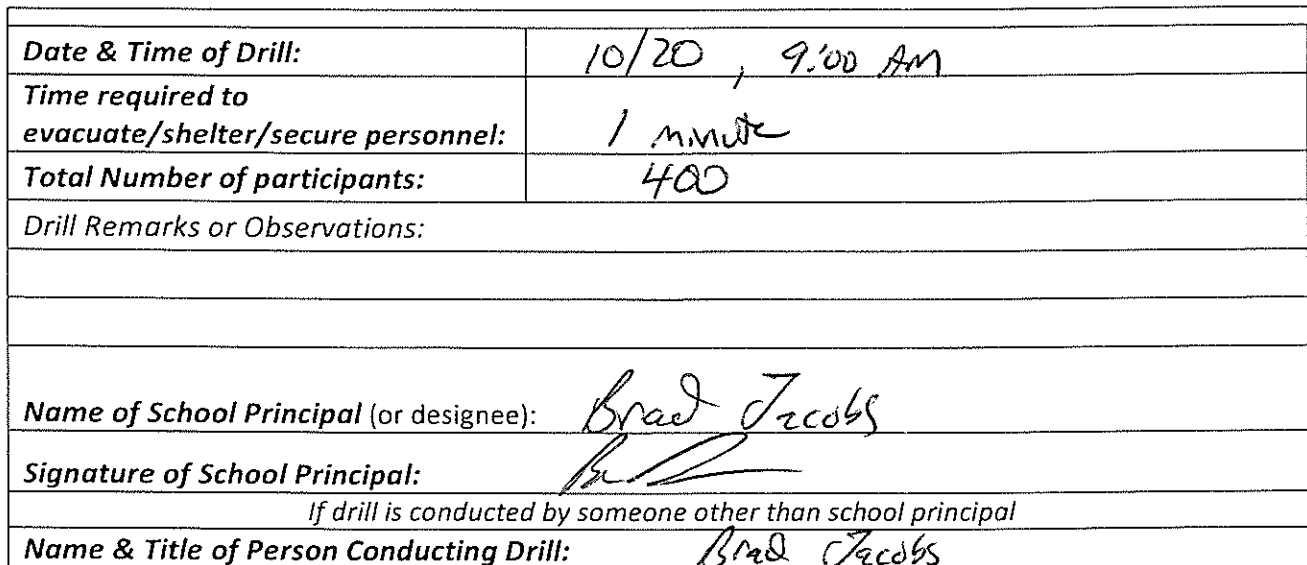 Date & Time of Drill: 10/20, 9:00 AM
Time required to
evacuate/shelter/secure personnel: 1 minute
Total Number of participants: 400
Drill Remarks or Observations:
Name of School Principal (or designee): Brad Jacobs
Signature of School Principal:
If drill is conducted by someone other than school principal
Name & Title of Person Conducting Drill: Brad Jacobs